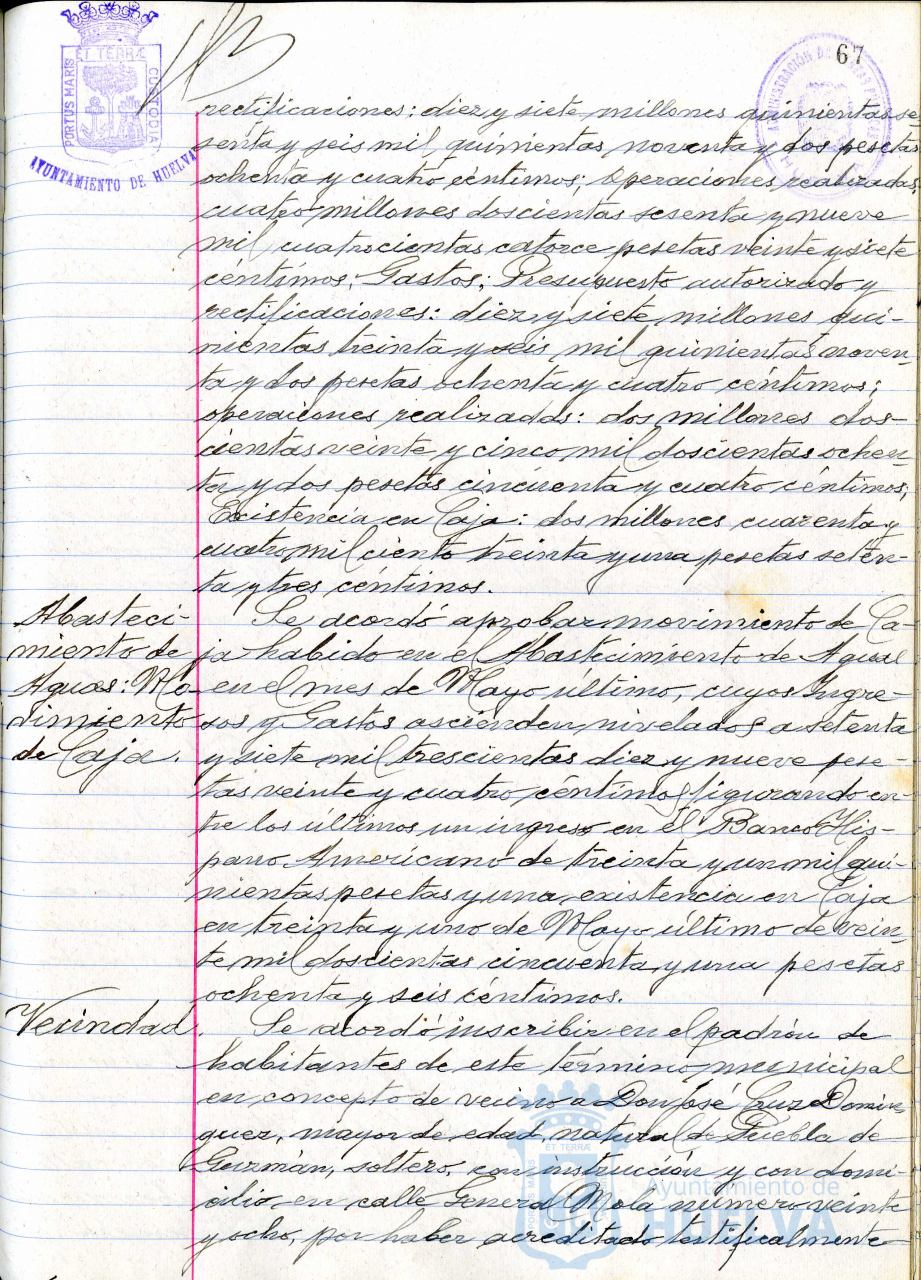 67
PORTUS MARIS
ET TERRÆ
CUSTODIA
AYUNTAMIENTO DE HUELVA
rectificaciones: diez y siete millones quinientas se-
senta y seis mil, quinientas noventa y dos pesetas
ochenta y cuatro céntimos; operaciones realizadas,
cuatro millones doscientas sesenta y nueve
mil cuatrocientas catorce pesetas veinte y siete
centimos. Gastos, Presupuesto autorizado y
rectificaciones: diez y siete millones qui-
nientas treinta y seis mil quinientas noven-
ta y dos pesetas ochenta y cuatro céntimos;
operaciones realizadas: dos millones dos-
cientas veinte y cinco mil doscientas ochen-
ta y dos pesetas cincuenta y cuatro céntimos;
Existencia en Caja: dos millones cuarenta y
cuatro mil ciento treinta y una pesetas seten-
ta y tres céntimos.
Abasteci-
miento de
Aguas: Mo-
vimiento
de Caja.
Se acordó aprobar movimiento de Ca-
ja habido en el Abastecimiento de Aguas
en el mes de Mayo último, cuyos Ingre-
sos y Gastos ascienden nivelados a setenta
y siete mil trescientas diez y nueve pese-
tas veinte y cuatro céntimos, figurando en-
tre los últimos un ingreso en el Banco His-
pano Americano de treinta y un mil qui-
nientas pesetas y una existencia en Caja
en treinta y uno de Mayo último de vein-
te mil doscientas cincuenta y una pesetas
ochenta y seis céntimos.
Vecindad.
Se acordó inscribir en el padrón de
habitantes de este término municipal
en concepto de vecino a Don José Cruz Domin-
guez, mayor de edad, natural de Puebla de
Guzmán, soltero, con instrucción y con domi-
cilio en calle General Mola número veinte
y ocho, por haber acreditado testificalmente
Ayuntamiento de
HUELVA